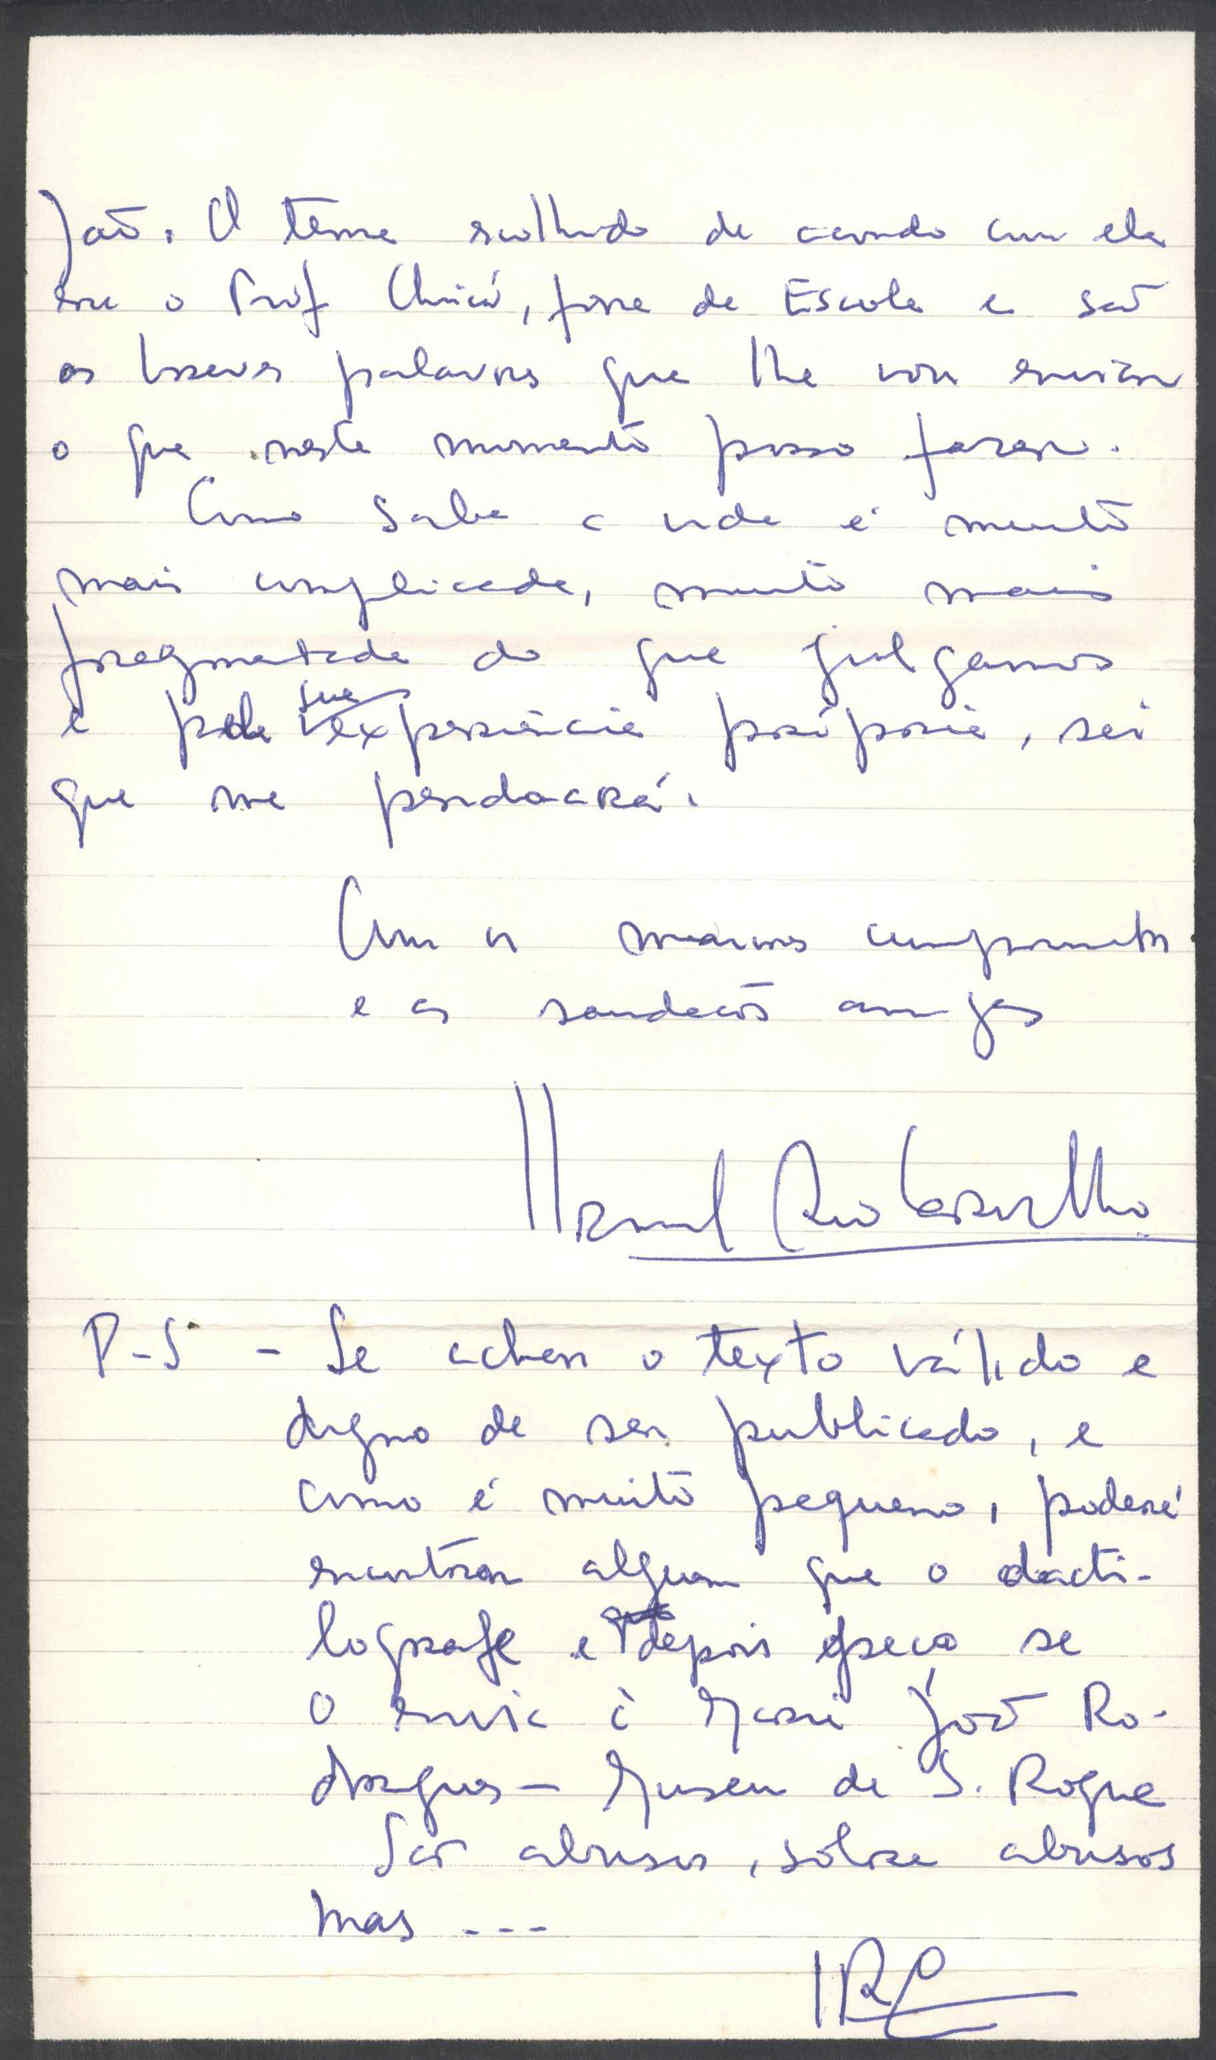 João. O tema escolhido de acordo com ela
era o Prof Chicó, fora da Escola e são
as breves palavras que lhe vou enviar
o que neste momento posso fazer.
Como sabe a vida é muito
mais complicada, muito mais
fragmentada do que julgamos
e pela sua experiência própria, sei
que me perdoará.
Com os maiores cumprimentos
e as saudações amigas
Manuel Rio Carvalho
P-S - Se achar o texto válido e
digno de ser publicado, e
como é muito pequeno, poderá
encontrar alguem que o dacti-
lografe e depois peço se
o envia à Maria João Ro-
drigues - Museu de S. Roque
São abusos, sobre abusos
mas ---
MRC